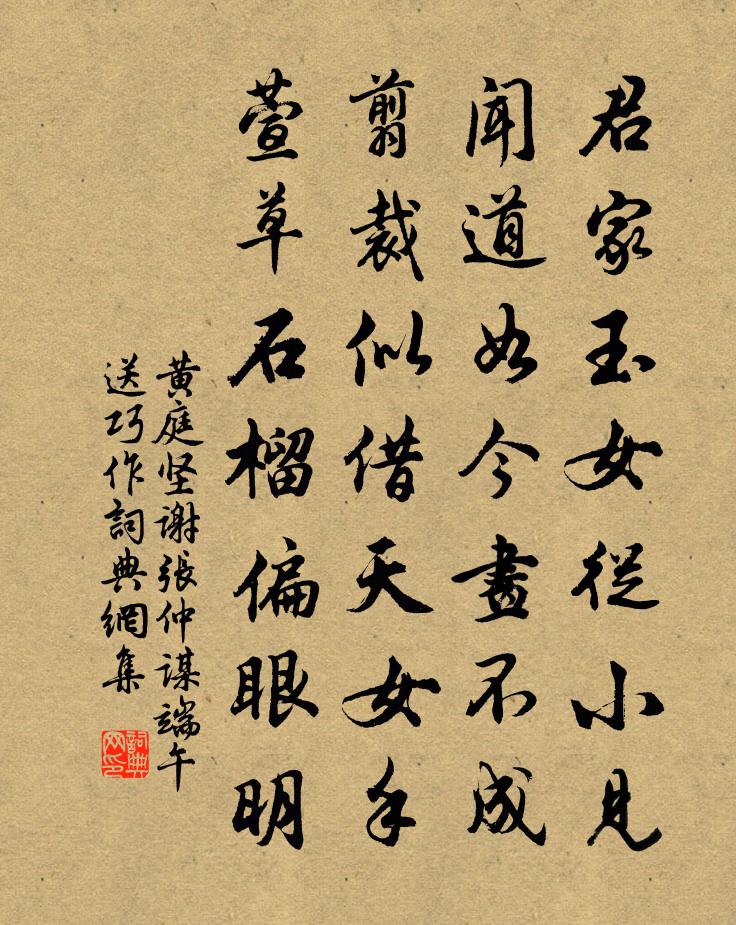 君家玉女從小見
聞道如今畫不成
翦裁似借天女手
萱草石榴偏眼明
黄庭坚謝張仲謀端午
送巧作詞典網集
詞典网印